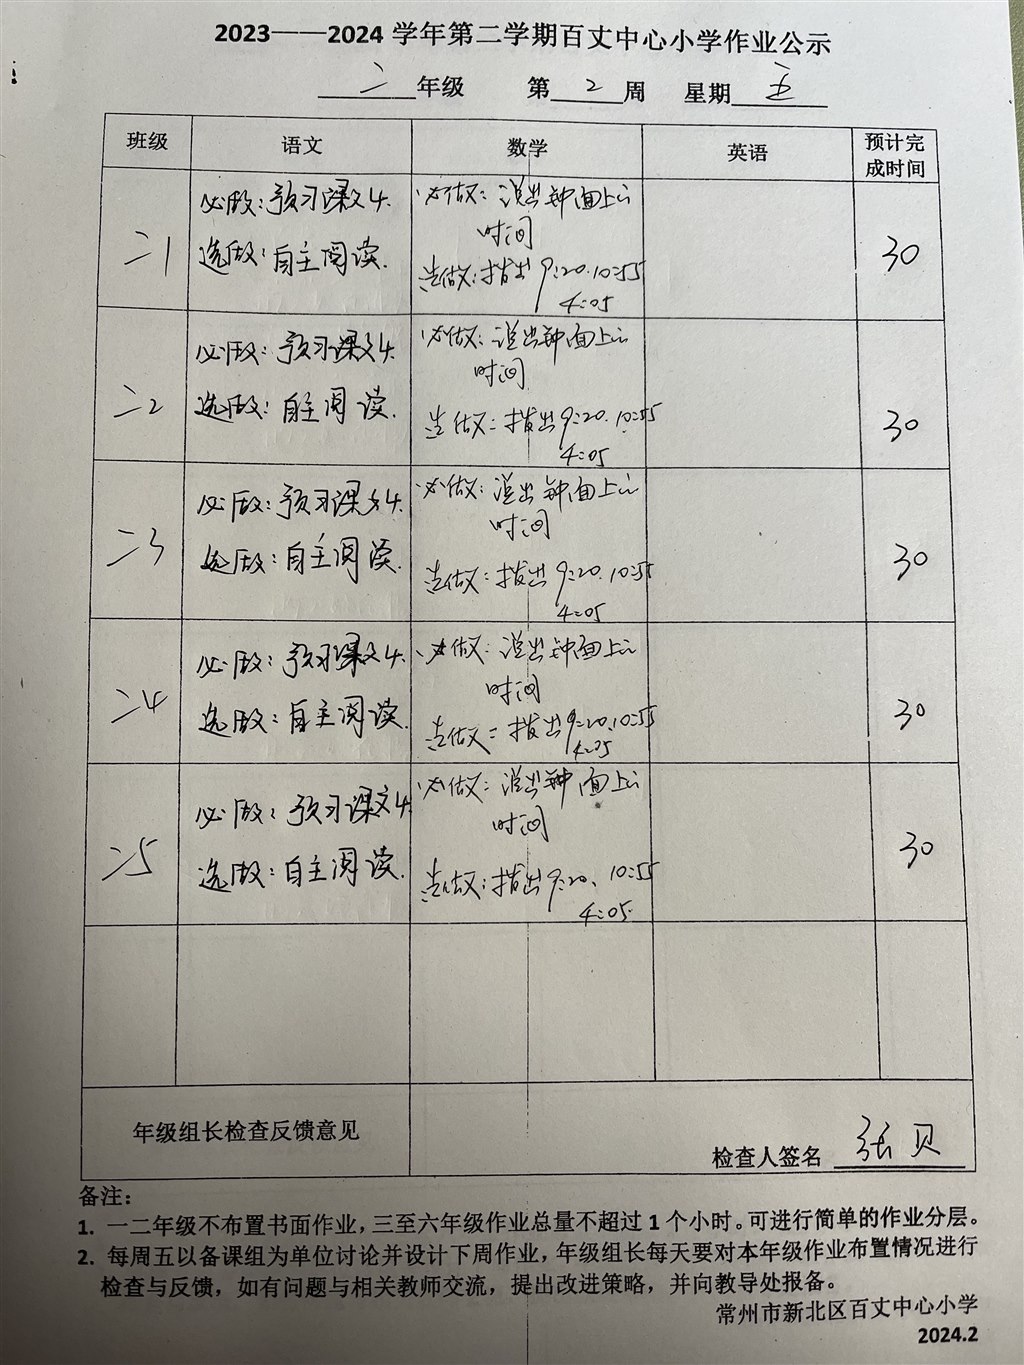 2023——2024 学年第二学期百丈中心小学作业公示
二年级 第2周 星期五
班级 语文 数学 英语 预计完成时间
二1
必做：预习课文4.
选做：自主阅读.
必做：说出钟面上的
时间
选做：拨出9:20.10:55
4:05
30
二2
必做：预习课文4.
选做：自主阅读.
必做：说出钟面上的
时间
选做：拨出9:20.10:55
4:05
30
二3
必做：预习课文4.
选做：自主阅读.
必做：说出钟面上的
时间
选做：拨出9:20.10:55
4:05
30
二4
必做：预习课文4.
选做：自主阅读.
必做：说出钟面上的
时间
选做：拨出9:20.10:55
4:05
30
二5
必做：预习课文4.
选做：自主阅读.
必做：说出钟面上的
时间
选做：拨出9:20、10:55
4:05
30
年级组长检查反馈意见
检查人签名 张贝
备注：
1. 一二年级不布置书面作业，三至六年级作业总量不超过 1 个小时。可进行简单的作业分层。
2. 每周五以备课组为单位讨论并设计下周作业，年级组长每天要对本年级作业布置情况进行
检查与反馈，如有问题与相关教师交流，提出改进策略，并向教导处报备。
常州市新北区百丈中心小学
2024.2